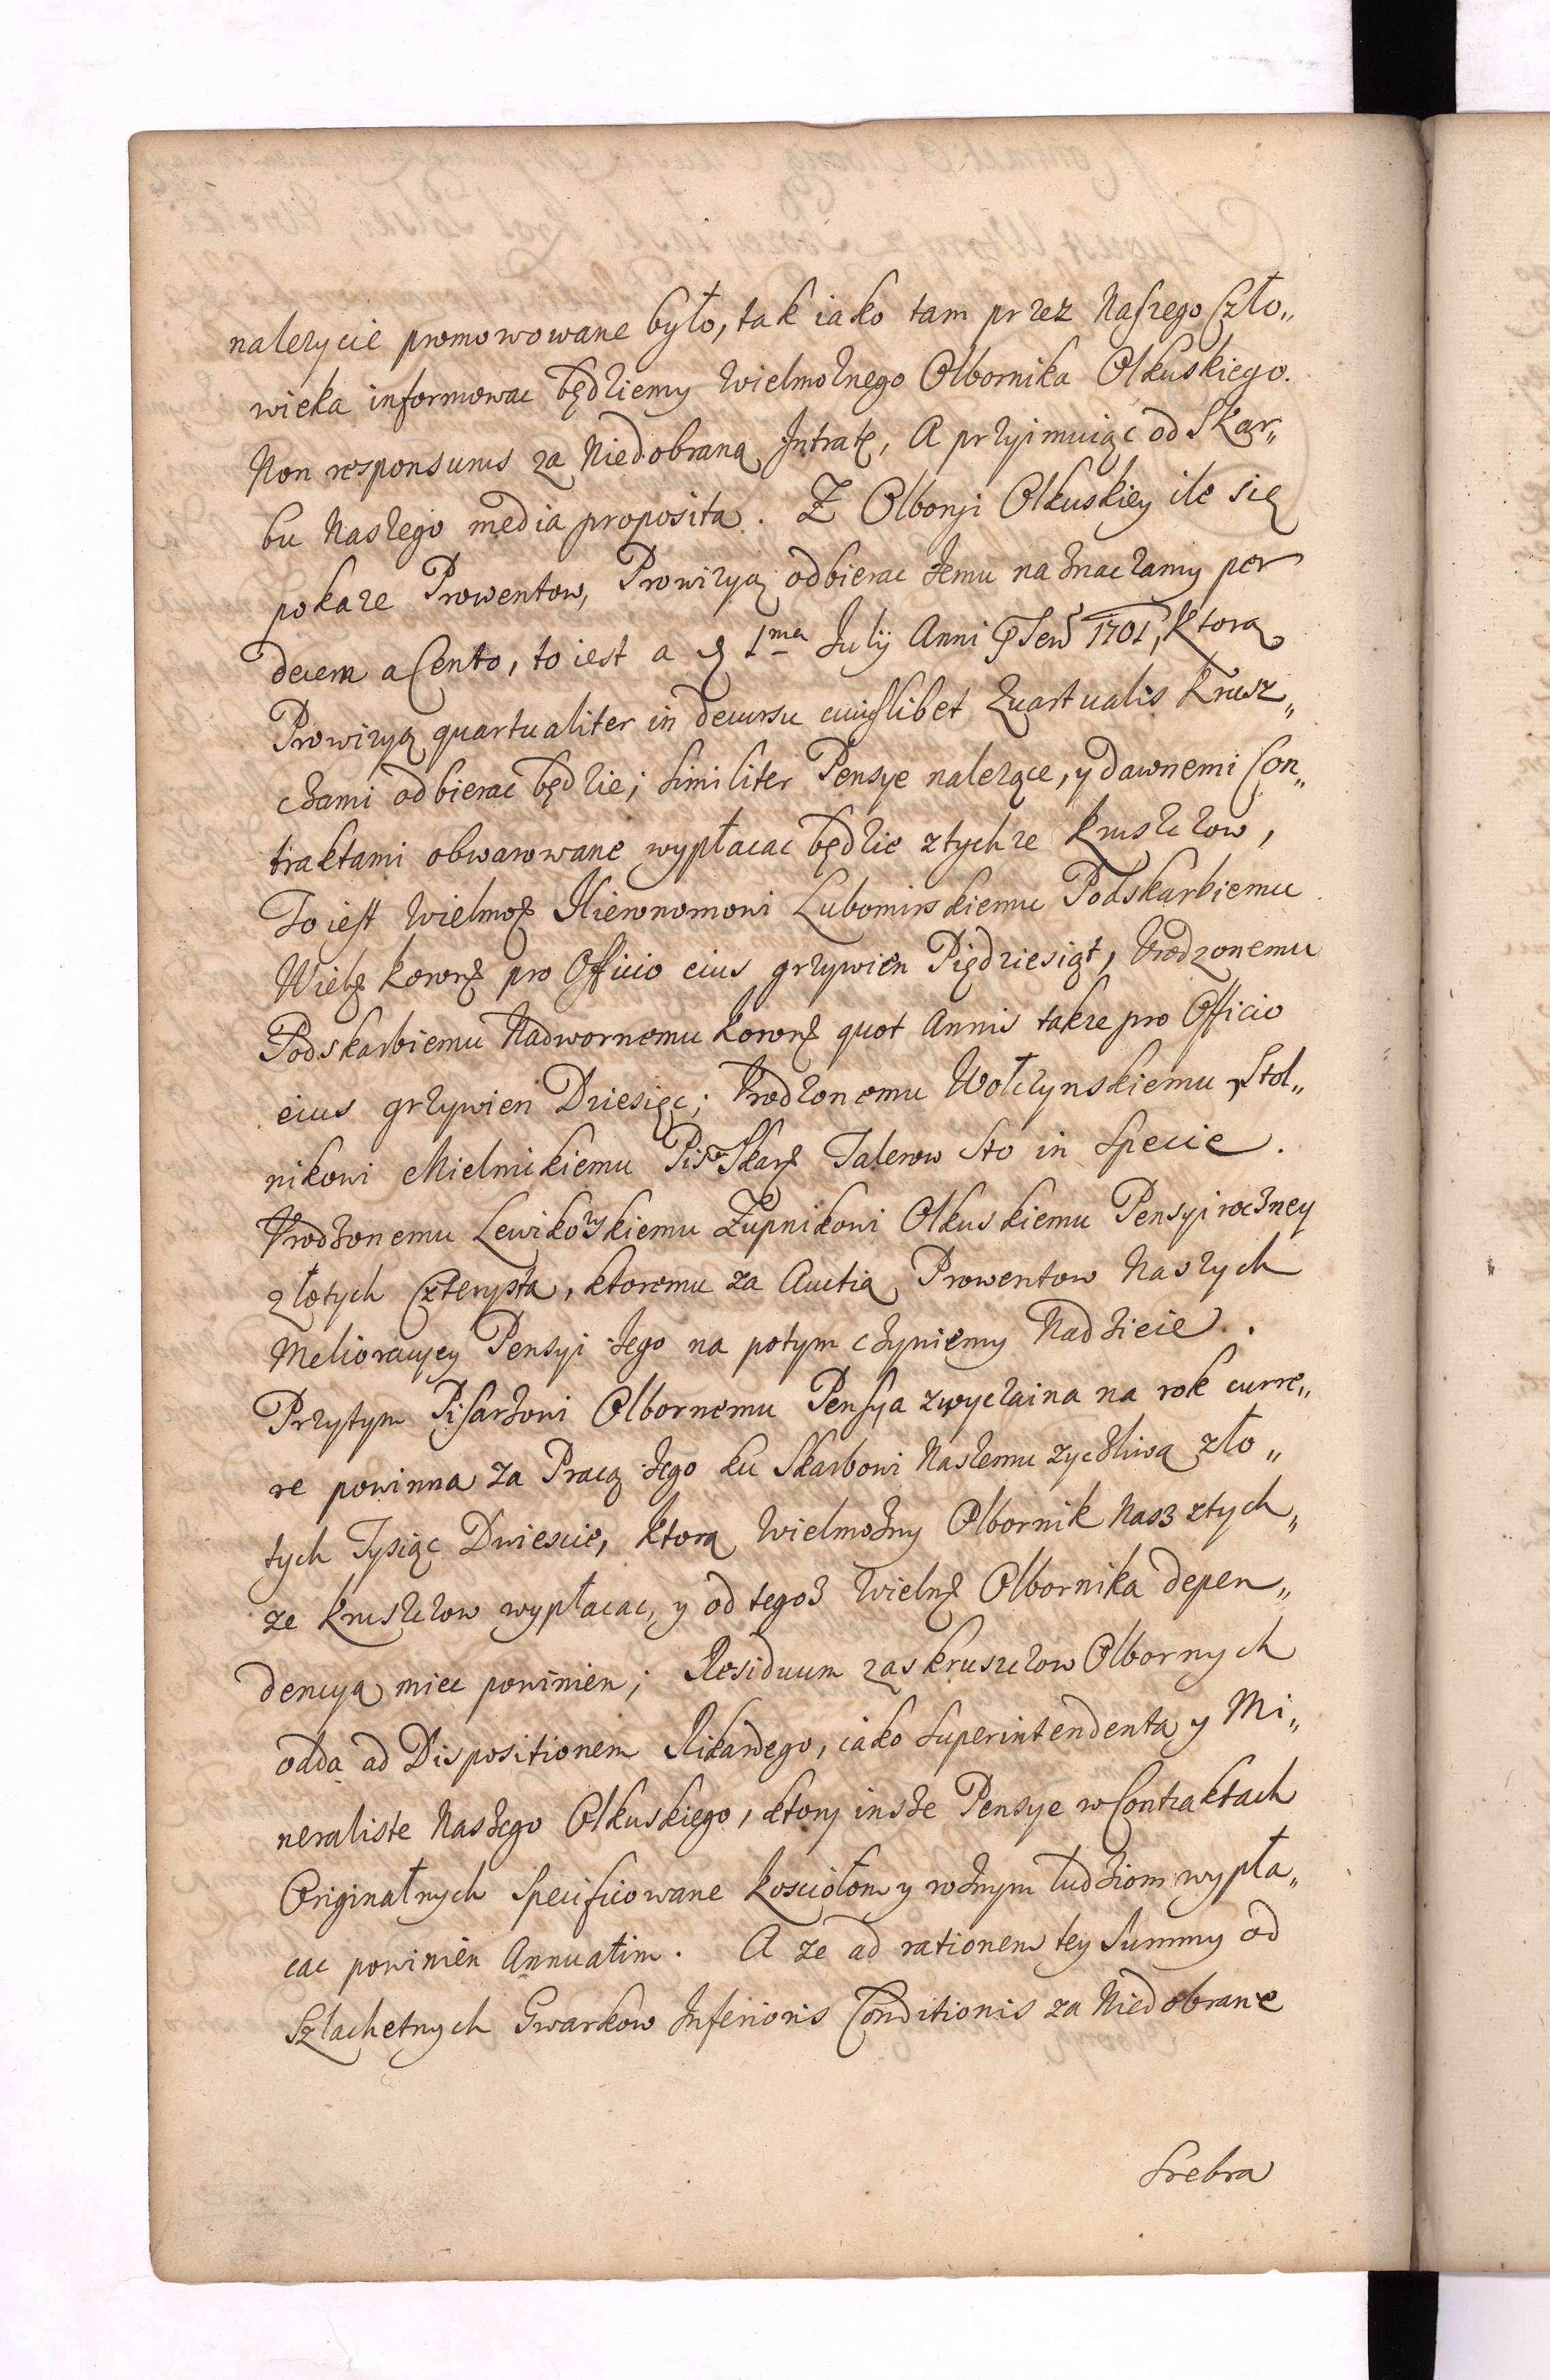 nalezycie promowowane było, tak iako tam przez Naszego Czło„
wieka informowac będziemy Wielmoznego Olbornika Olkuskiego.
Non responsurus za Niedobraną Intratę, A przyimuiąc od Skar„
bu Naszego media proposita. Z Olbonji Olkuskiey ile się
pokaze Prowentow, Prowizyą odbierac Jemu naznaczamy per
decem a Cento, to iest a 1ma July Anni 1701, ktorą
Prowizyą quartualiter in decursu cuiuslibet Quartualis Krusz„
czami odbierac będzie; similiter Pensye nalezące, y dawnemi Con„
traktami obwarowane wypłacac będzie z tychze Kruszczow,
To iest Wielmoz Hieronomowi Lubomirskiemu Podskarbiemu
Wielg Koronn pro Officio eius grzywien Piędziesiąt, Urodzonemu
Podskarbiemu Nadwornemu Koronn quot Annis takze pro Officio
eius grzywien Dziesięc; Urodzonemu Wołczynskiemu Stol„
nikowi Mielnikiemu Pisr Skar Talerow Sto in Specie.
Urodzonemu Lewikowskiemu Zupnikowi Olkuskiemu Pensyi roczney
złotych Czterysta, ktoremu za Auctią Prowentow Naszych
Melioracyey Pensyi Jego na potym czyniemy Nadzieie.
Przytym Pisarzowi Olbornemu Pensya zwyczaina na rok curre„
re powinna za Pracą Jego ku Skarbowi Naszemu zyczliwą zło„
tych Tysiąc Dwiescie, ktorą Wielmozny Olbornik Nasz z tych„
ze Kruszczow wypłacac, y od tegoz Wielm Olbornika depen„
dencyą miec powinien; Residuum zas kruszczow Olbornych
odda ad Dispositionem Rikardego, iako Superintendenta y Mi„
neraliste Naszego Olkuskiego, ktory insze Pensye w Contraktach
Originałnych Specificowane Kosciołom y roznym ludziom wypła„
cac powinien Annuatim. A ze ad rationem tey Summy od
Szlachetnych Gwarkow Inferioris Conditionis za Niedobrane
Srebra